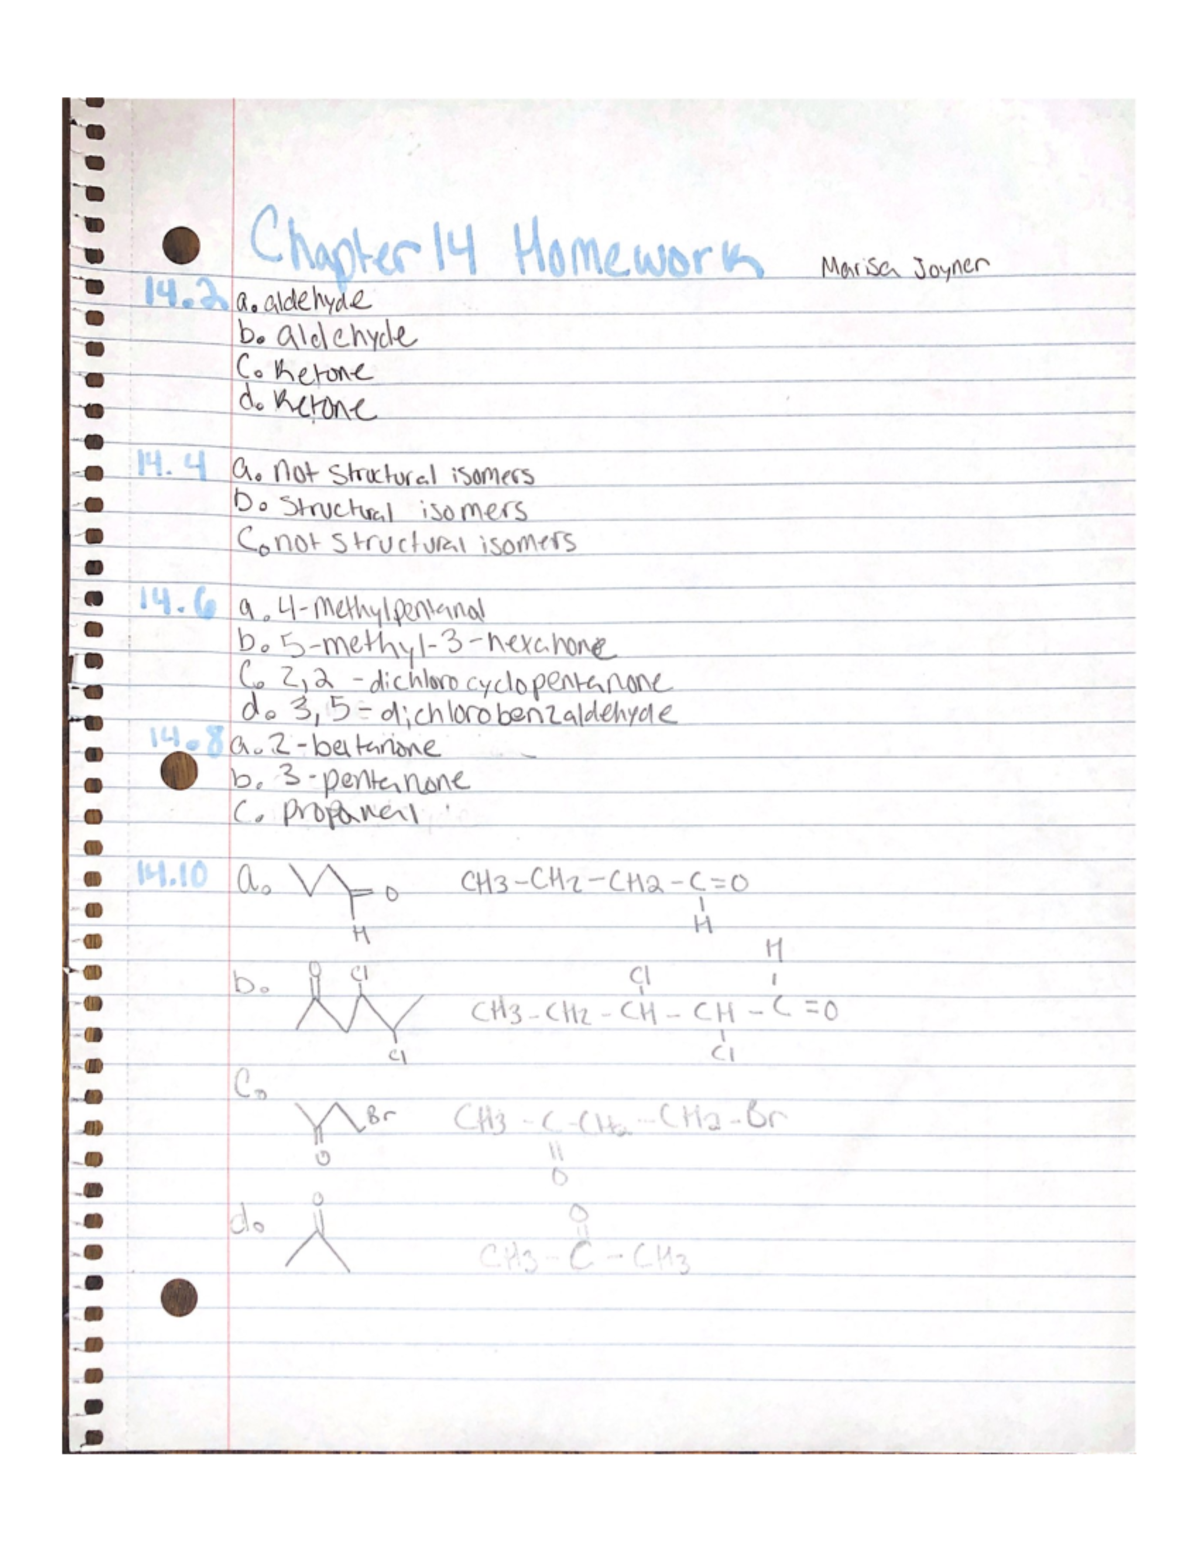 Chapter 14 Homework Marisa Joyner
14.2 a. aldehyde
b. aldehyde
c. Ketone
d. Ketone
14.4 a. not structural isomers
b. structural isomers
c. not structural isomers
14.6 a. 4-methylpentanal
b. 5-methyl-3-hexanone
c. 2,2 -dichlorocyclopentanone
d. 3,5-dichlorobenzaldehyde
14.8 a. 2-butanone
b. 3-pentanone
c. propanal
14.10 a. O CH3-CH2-CH2-C=O
H H
H
b. O Cl Cl
CH3-CH2-CH-CH-C=O
Cl Cl
c.
Br CH3-C-CH2-CH2-Br
O O
d. O O
CH3-C-CH3